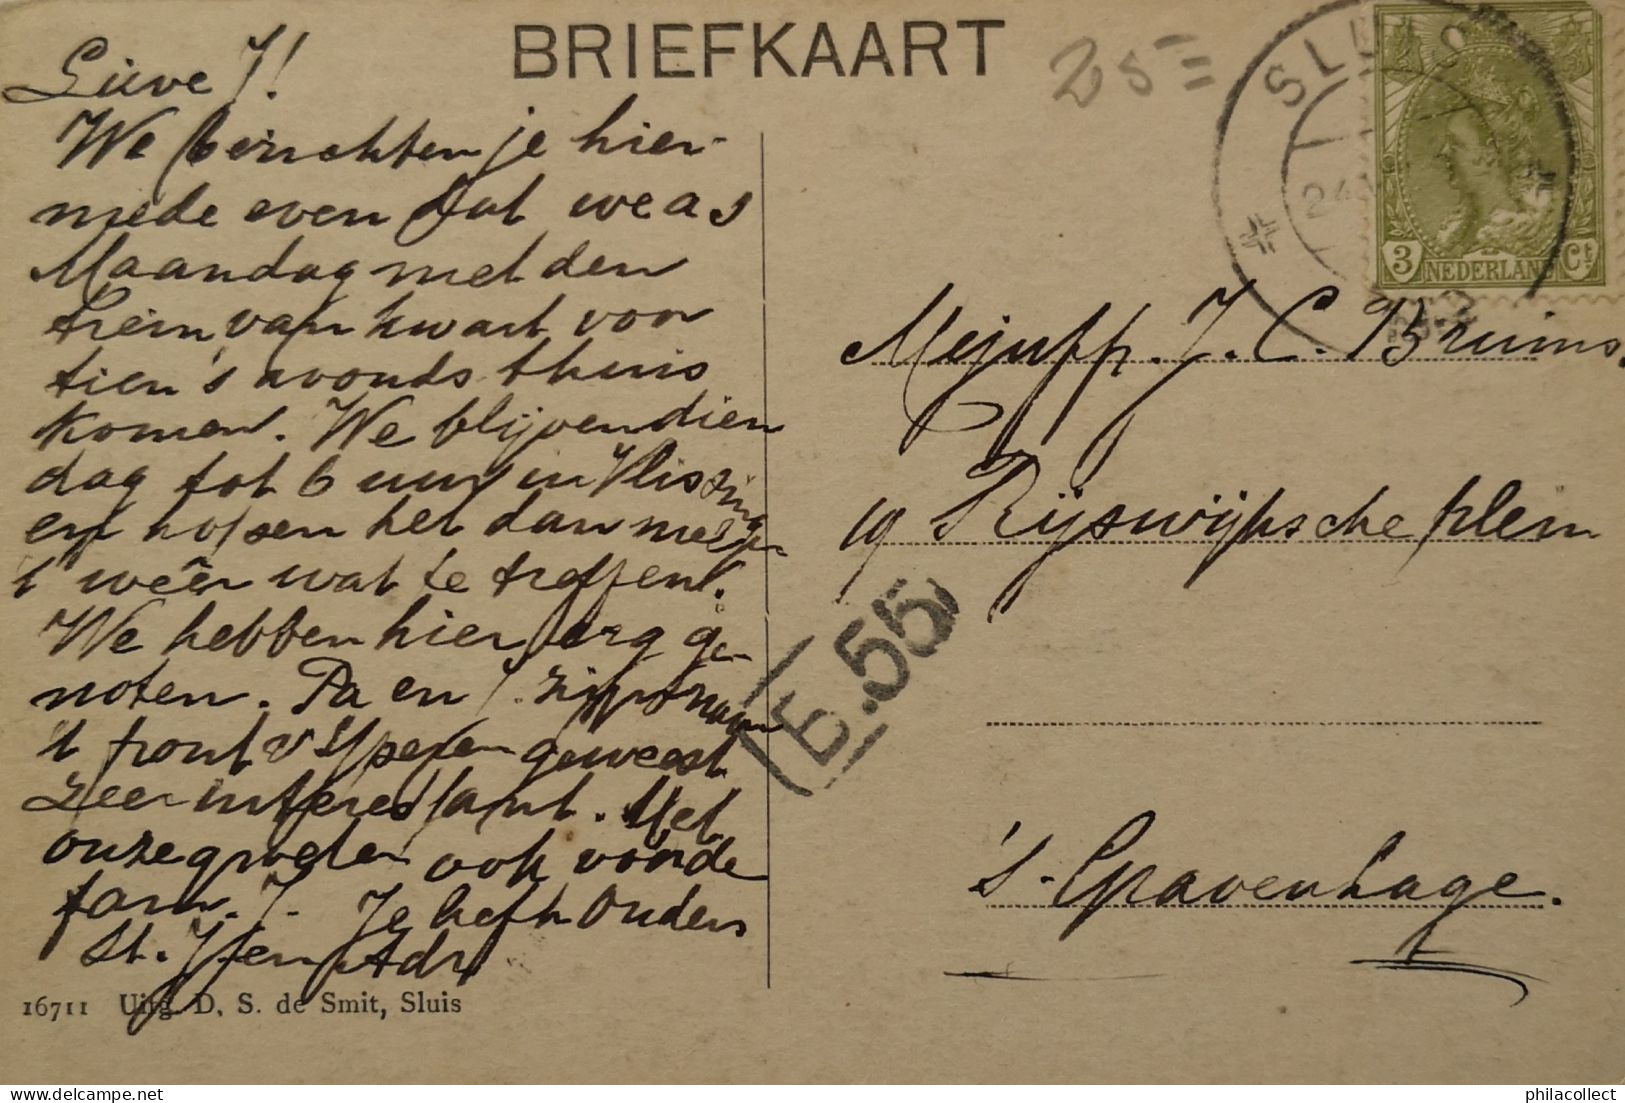 BRIEFKAART
25=
SLUIS
24
3 NEDERLAND Ct
Lieve J!
We berichten je hier-
mede even dat we a s
Maandag met den
trein van kwart voor
tien 's avonds thuis
komen. We blijven dien
dag tot 6 uur in Vlissingen
en hopen het dan met
't weêr wat te treffen.
We hebben hier erg ge-
noten. Pa en J. zijn naar
't front v Yperen geweest
zeer interessant. Met
onze groeten ook voor de
fam. J. Je liefh Ouders
Mejuffr. J. C. Bruins.
19 Rijswijksche plein
's-Gravenhage.
E.55
16711 Uitg. D. S. de Smit, Sluis
philacollect